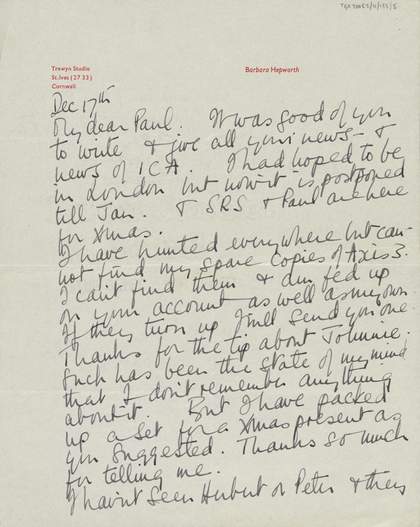 Trewyn Studio
St.Ives (2733)
Cornwall
Barbara Hepworth
Dec 17th
My dear Paul. It was good of you
to write & give all your news – &
news of ICA. I had hoped to be
in London but now it is postponed
till Jan. & SRS & Paul are here
for Xmas.
I have hunted everywhere but can-
not find my spare copies of Axis 3.
I can't find them & am fed up
on your account as well as my own.
If they turn up I will send you one.
Thanks for the tip about Johnnie.
Such has been the state of my mind
that I don't remember anything
about it. But I have packed
up a set for a Xmas present as
you suggested. Thanks so much
for telling me.
I havnt seen Herbert or Peter &